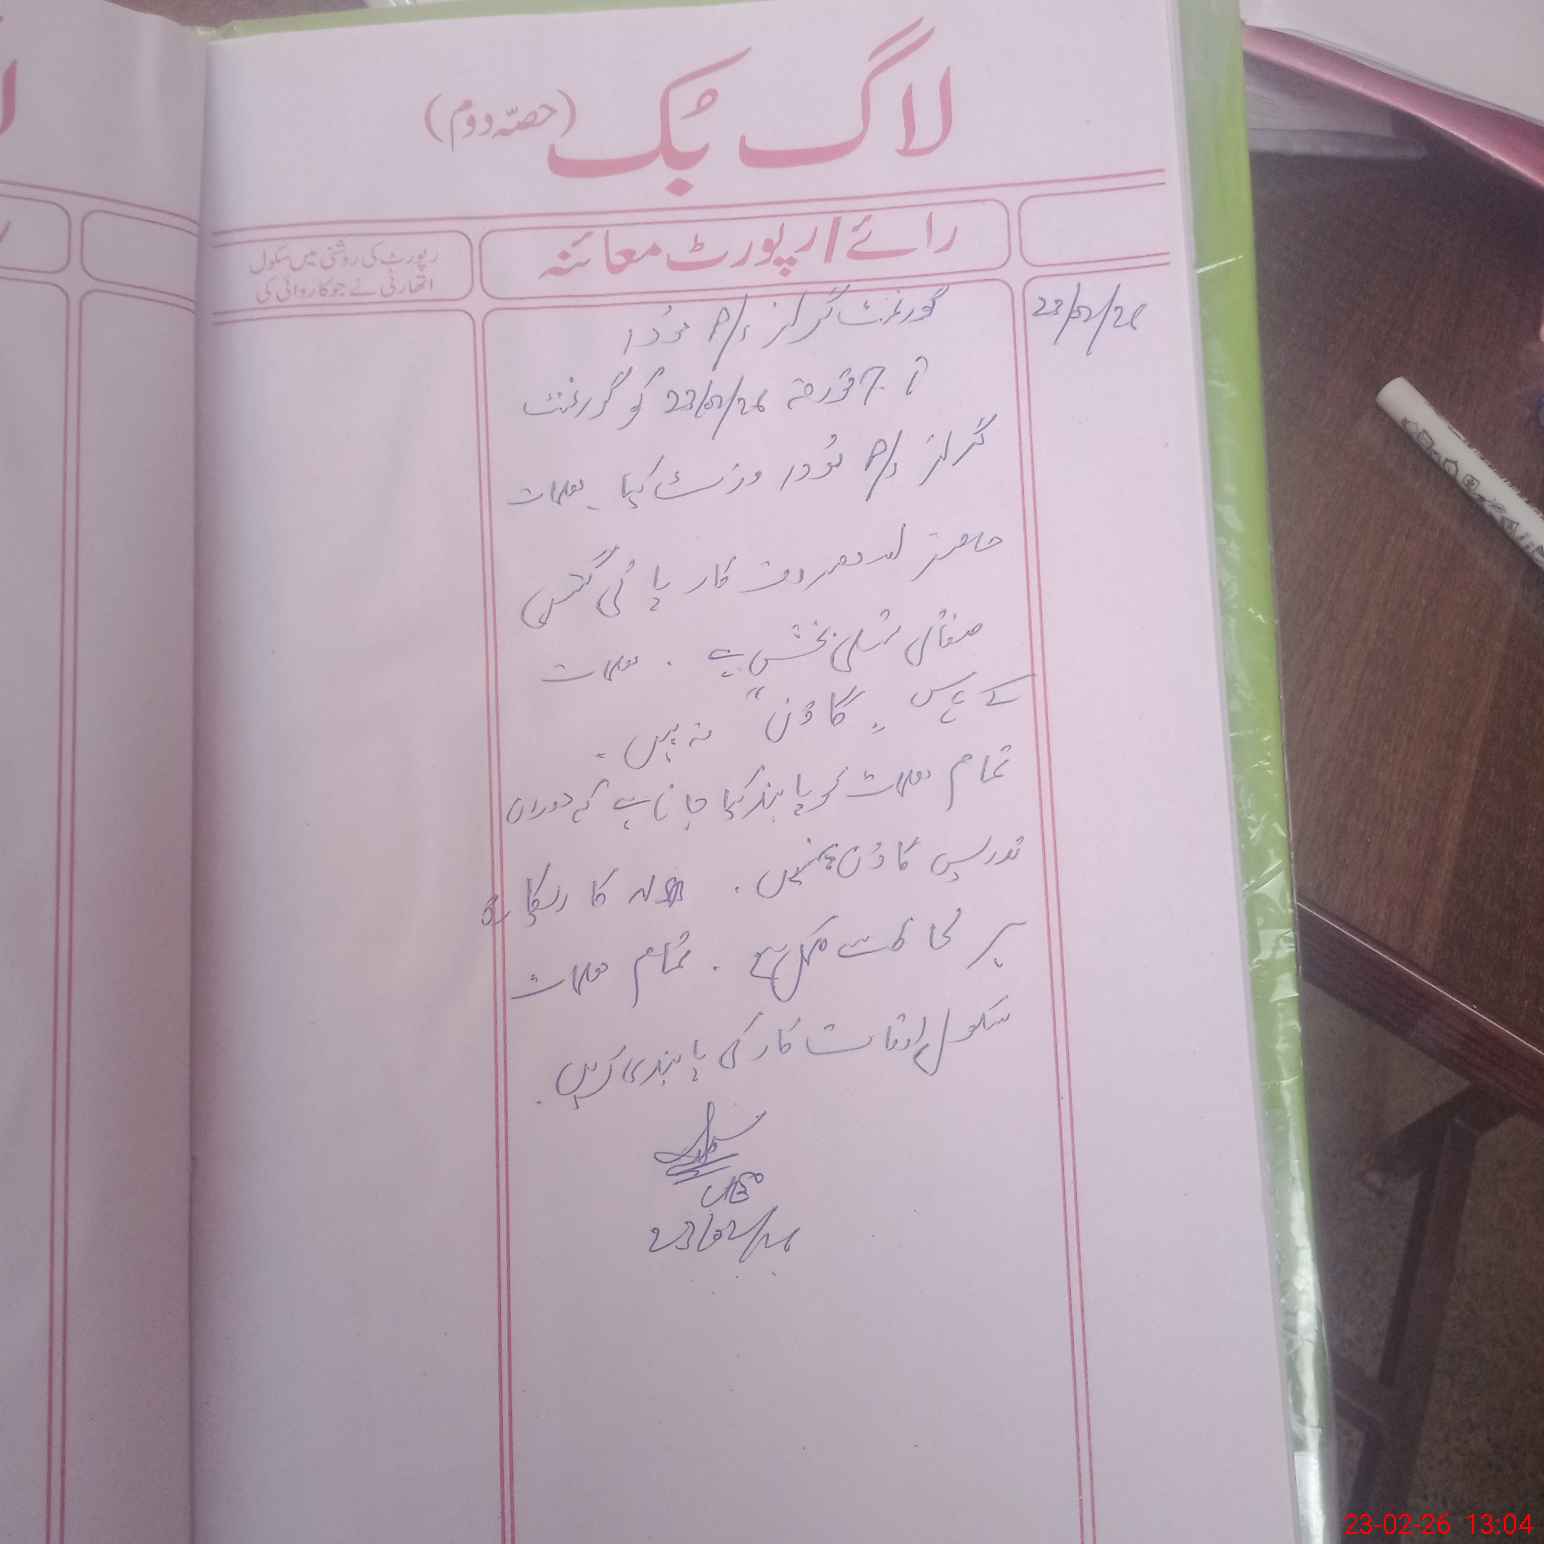 لاگ بُک (حصّہ دوم)
رائے / رپورٹ معائنہ
رپورٹ کی روشنی میں سکول
اتھارٹی نے جو کاروائی کی
23/02/26
گورنمنٹ گرلز P/S
آج مورخہ 23/02/26 کو گورنمنٹ
گرلز P/S وزٹ کیا۔ معلمات
حاضر اور مصروف کار پائی گئیں
صفائی تسلی بخش ہے۔ معلمات
کے پاس "گاؤن" نہ ہیں۔
تمام معلمات کو پابند کیا جاتا ہے کہ دوران
تدریس گاؤن پہنیں۔ کا ریکارڈ
ہر لحاظ سے مکمل ہے۔ تمام معلمات
سکول اوقات کار کی پابندی کریں۔
23/02/26
23-02-26 13:04